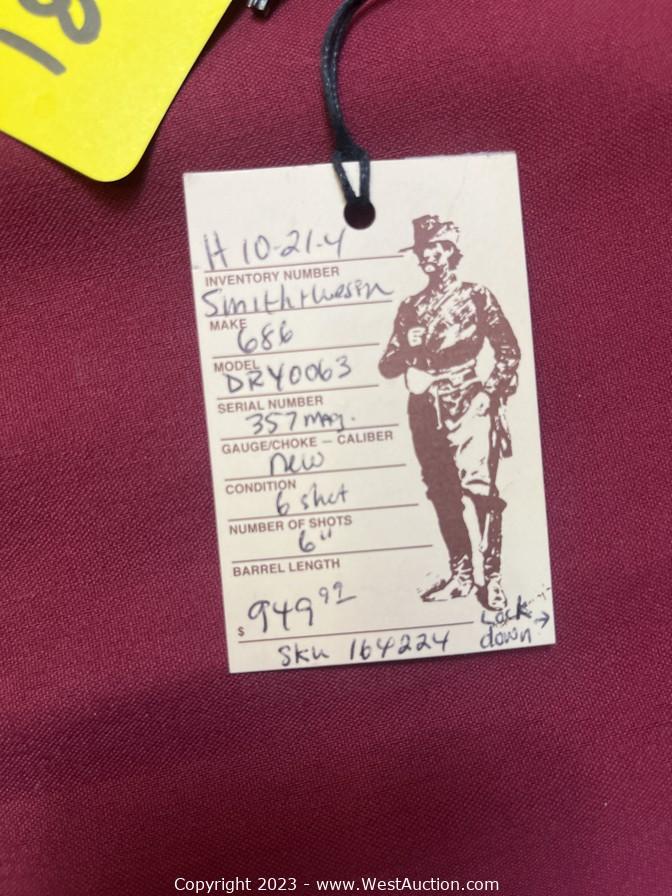 18
H 10-21-4
INVENTORY NUMBER
Smith+Wesson
MAKE
686
MODEL
DRY0063
SERIAL NUMBER
357 mag.
GAUGE/CHOKE — CALIBER
new
CONDITION
6 shot
NUMBER OF SHOTS
6"
BARREL LENGTH
$ 949 92
Lock
down →
SKU 164224
Copyright 2023 - www.WestAuction.com